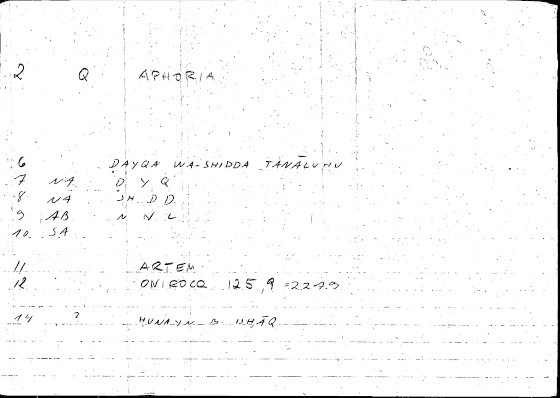 2 Q APHORIA
6 ḌAYQA WA-SHIDDA TANĀLUHU
7 NA Ḍ Y Q
8 NA SH D D
9 AB N N L
10 SA
11 ARTEM
12 ONIROCR 125,9 =221.9
14 ? ḤUNAYN B ISḤĀQ